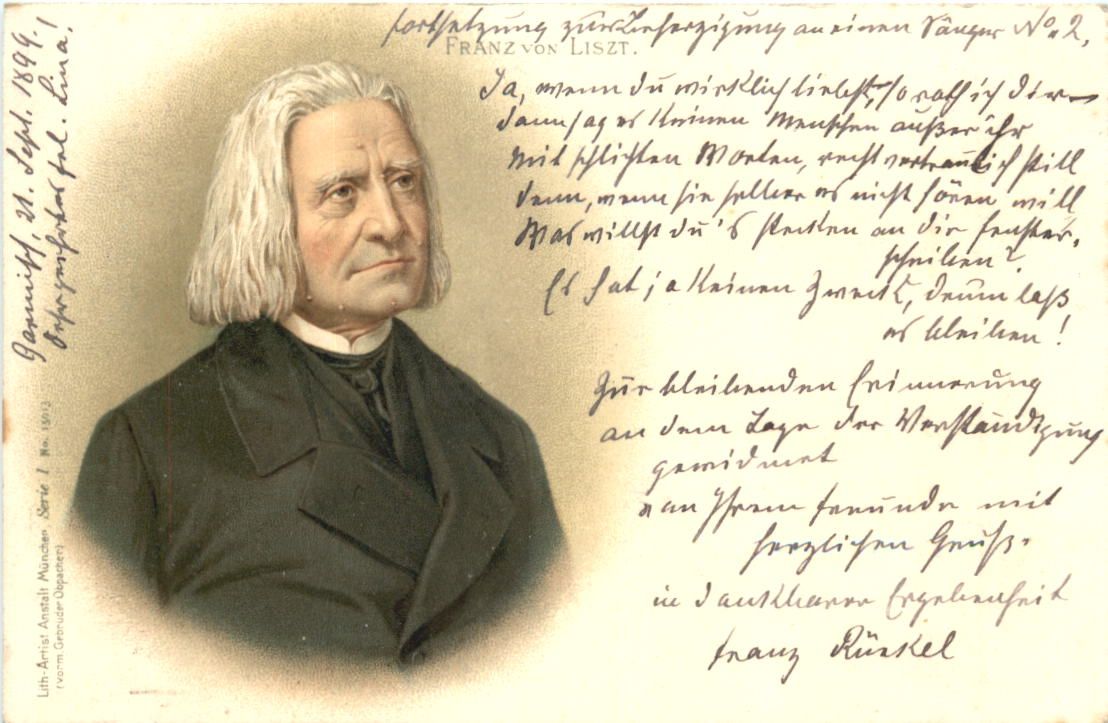 Garmisch, 21. Sept. 1899.
Sehr geehrtes Frl. Lina!
Fortsetzung zur Beherzigung an einen Sänger No. 2.
FRANZ VON LISZT.
Ja, wenn du wirklich liebst, so rath ich dir
dann sag es keinem Menschen außer ihr
Mit schlichten Worten, recht vertraulich still
denn, wenn sie selber es nicht hören will
Was willst du's stecken an die Fenster-
scheiben?
Es hat ja keinen Zweck, drum laß
es bleiben!
Zur bleibenden Erinnerung
an dem Tage der Verständigung
gewidmet
von Ihrem Freunde mit
herzlichen Gruß.
in dankbarer Ergebenheit
Franz Rünkel
Lith.-Artist Anstalt München Serie I No. 15013
(vorm. Gebrüder Obpacher)